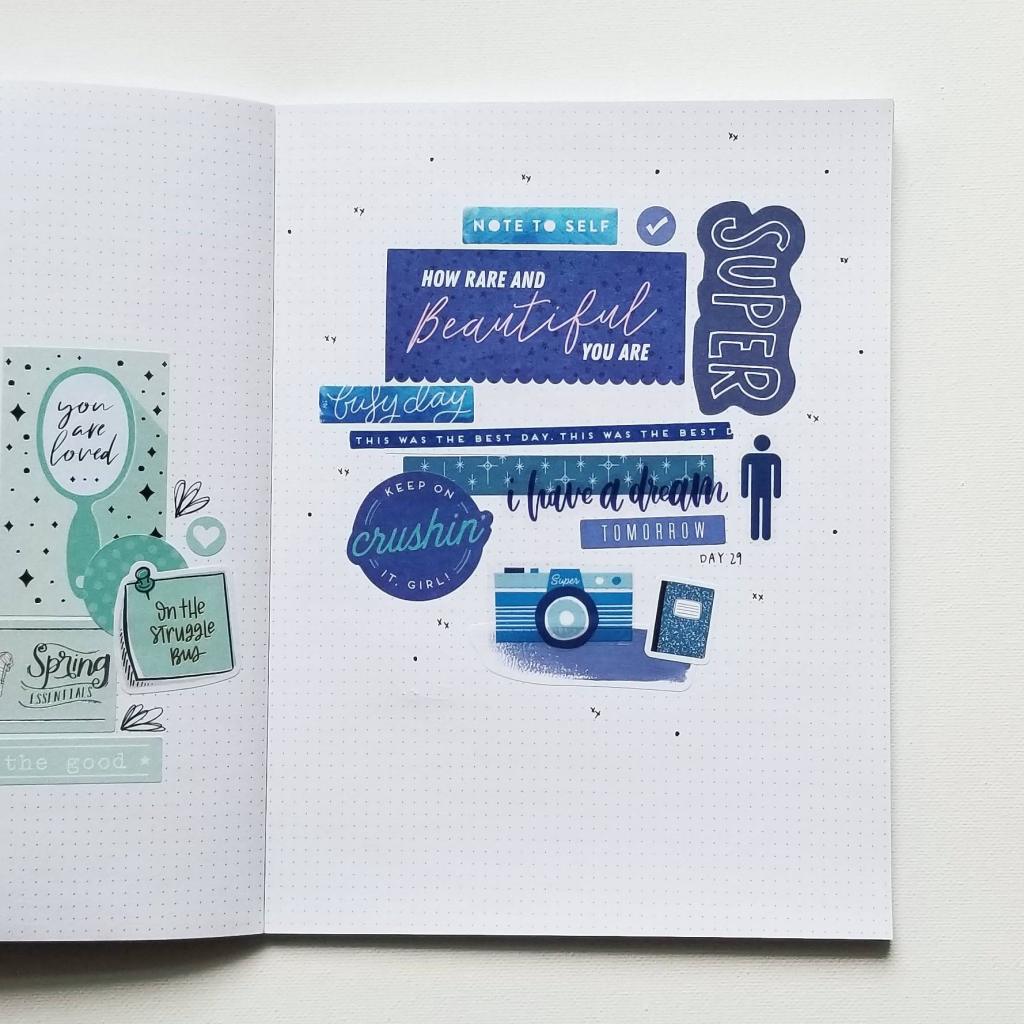 you
are
loved
...
on the
struggle
bus
Spring
ESSENTIALS
the good
NOTE TO SELF
SUPER
HOW RARE AND
Beautiful
YOU ARE
busy day
THIS WAS THE BEST DAY. THIS WAS THE BEST D
i have a dream
KEEP ON
crushin'
IT, GIRL!
TOMORROW
DAY 29
Super